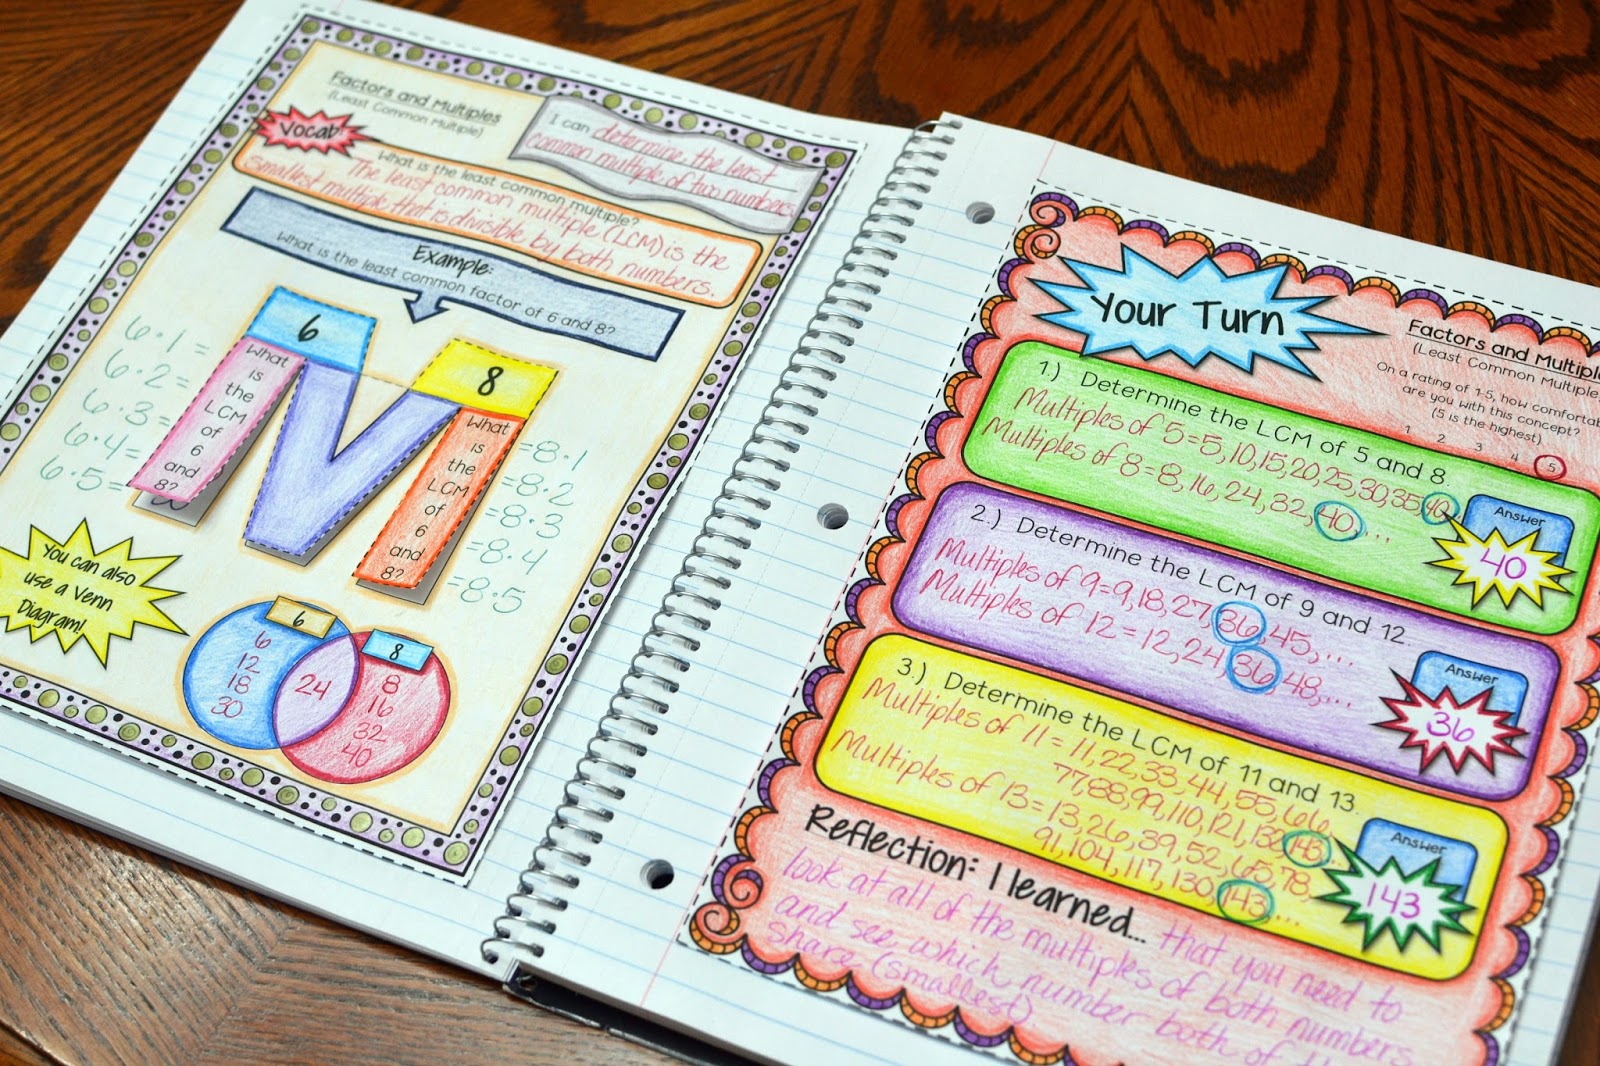 Factors and Multiples
(Least Common Multiple)
Vocab:
I can determine the least
common multiple of two numbers.
What is the least common multiple?
The least common multiple (LCM) is the
smallest multiple that is divisible by both numbers.
Example:
What is the least common factor of 6 and 8?
6
8
What
is
the
LCM
of
6
and
8?
What
is
the
LCM
of
6
and
8?
6·1=
6·2=
6·3=
6·4=
6·5=
=8·1
=8·2
=8·3
=8·4
=8·5
You can also
use a Venn
Diagram!
6
6
12
18
30
24
8
8
16
32
40
Your Turn
Factors and Multiple
(Least Common Multiple
On a rating of 1-5, how comfortab
are you with this concept?
(5 is the highest)
1 2 3 4 5
1.) Determine the LCM of 5 and 8.
Multiples of 5=5,10,15,20,25,30,35,40,...
Multiples of 8=8,16,24,32,40,...
Answer
40
2.) Determine the LCM of 9 and 12.
Multiples of 9=9,18,27,36,45,...
Multiples of 12=12,24,36,48,...
Answer
36
3.) Determine the LCM of 11 and 13.
Multiples of 11=11,22,33,44,55,66,
77,88,99,110,121,132,143...
Multiples of 13=13,26,39,52,65,78,
91,104,117,130,143,...
Answer
143
Reflection: I learned... that you need to
look at all of the multiples of both numbers
and see which number both of
share (smallest)